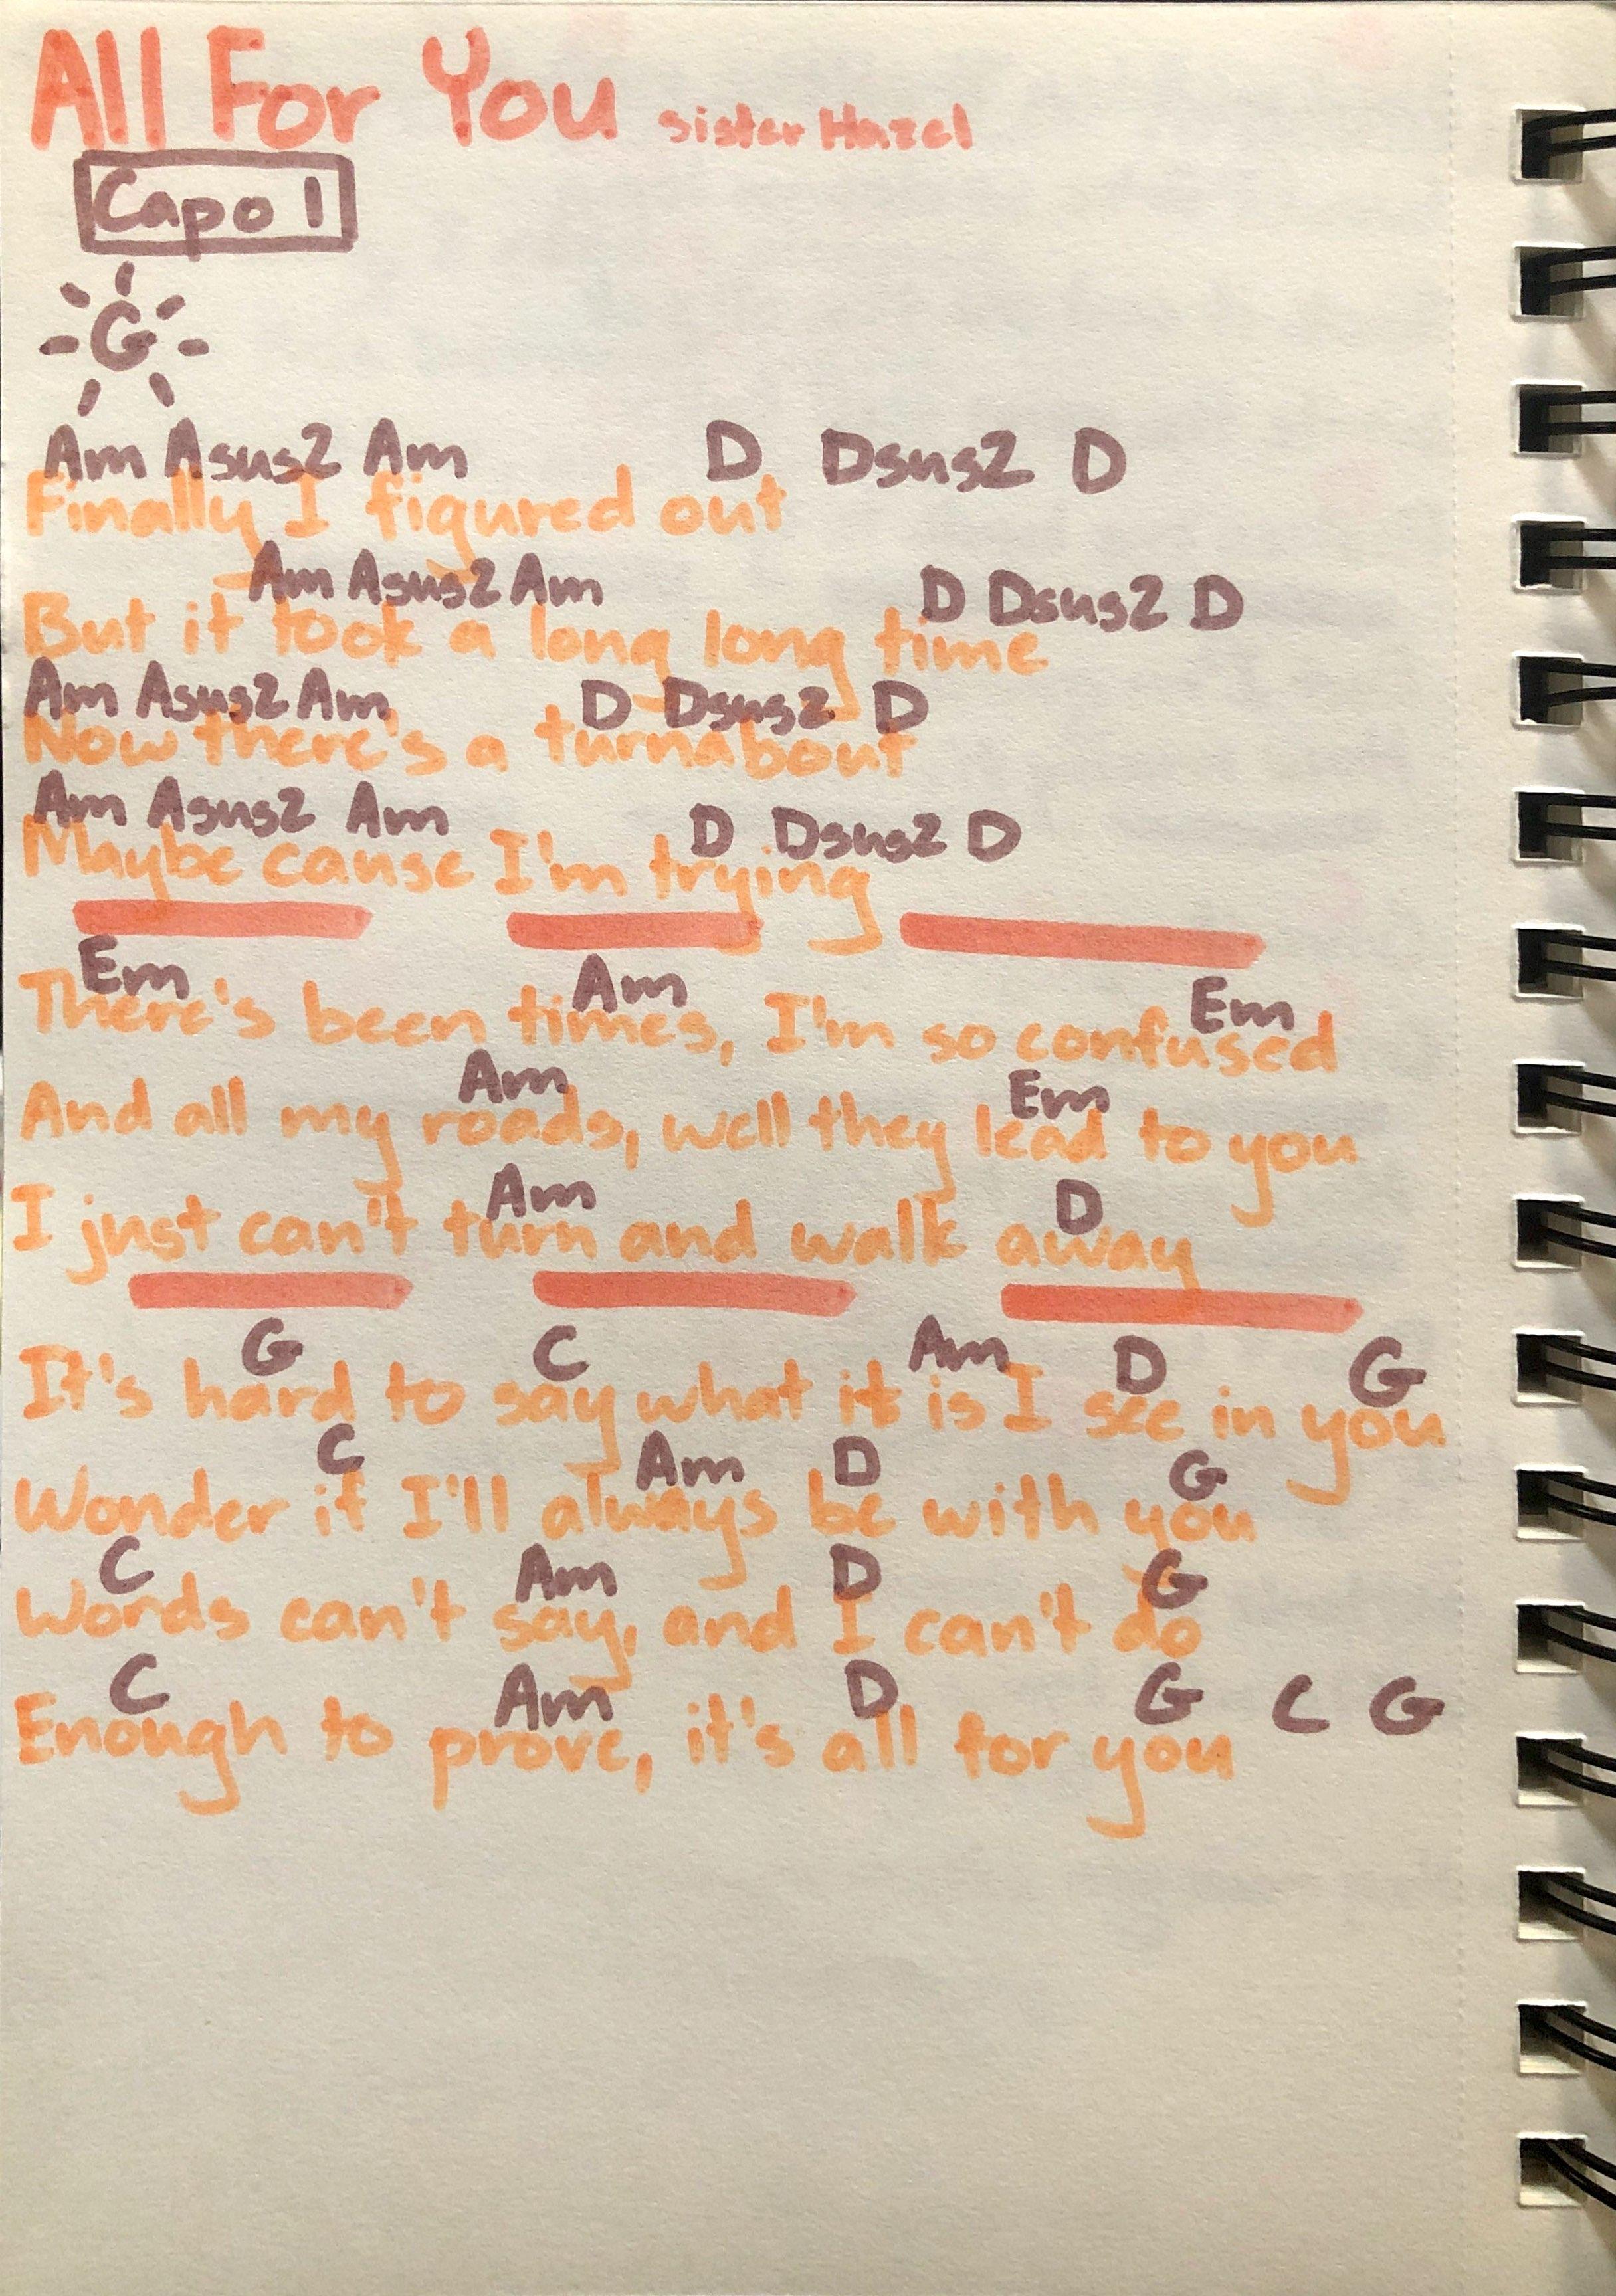 All For You sister Hazel
Capo 1
G
Am Asus2 Am D Dsus2 D
Finally I figured out
Am Asus2 Am D Dsus2 D
But it took a long long time
Am Asus2 Am D Dsus2 D
Now there's a turnabout
Am Asus2 Am D Dsus2 D
Maybe cause I'm trying
Em Am Em
There's been times, I'm so confused
Am Em
And all my roads, well they lead to you
Am D
I just can't turn and walk away
G C Am D G
It's hard to say what it is I see in you
C Am D G
Wonder if I'll always be with you
C Am D G
Words can't say, and I can't do
C Am D G C G
Enough to prove, it's all for you